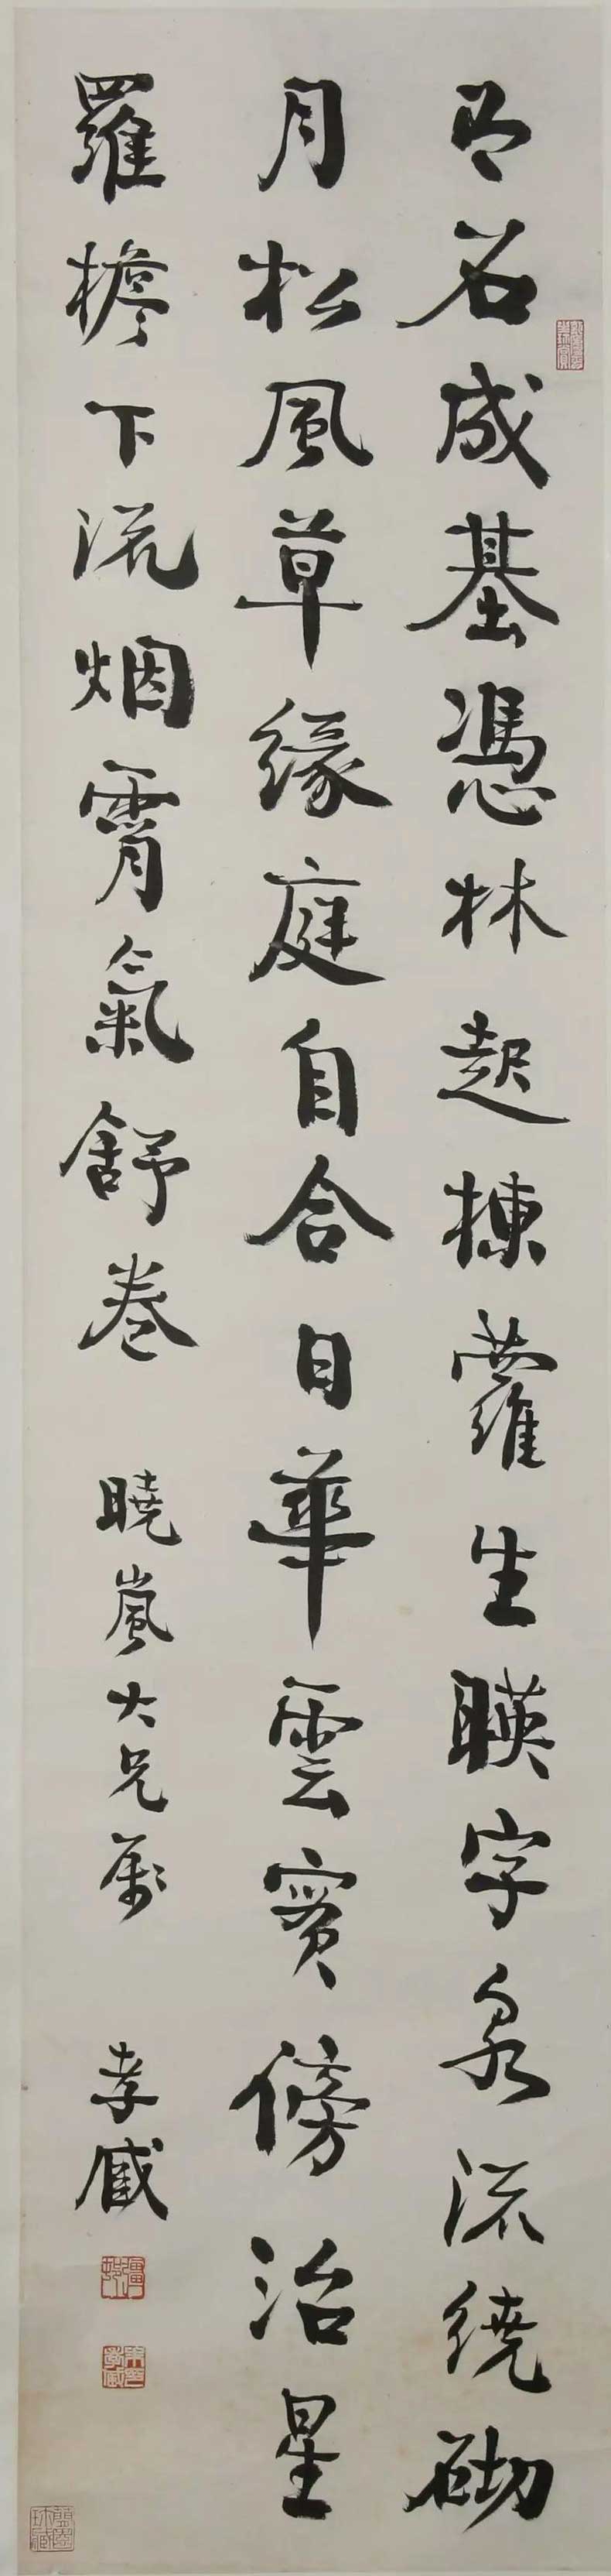 即石成基憑林起棟蘿生暎字泉流繞砌
月松風草緣庭自合日華雲實傍治星
羅檐下流烟霄氣舒卷
曉嵐大兄屬
孝臧
彊邨